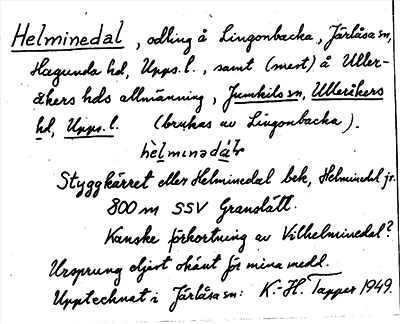 Helminedal, odling å Lingonbacka, Järlåsa sn,
Hagunda hd, Upps. l., samt (mest) å Uller-
åkers hds allmänning, Jumkils sn, Ulleråkers
hd, Upps. l. (brukas av Lingonbacka).
hèlminədá·ɽ
Styggkärret eller Helminedal bek, Helminedal jr.
800 m SSV Granslätt.
Kanske förkortning av Vilhelminedal?
Ursprung eljest okänt för mina medd.
Upptecknat i Järlåsa sn: K.-H. Tapper 1949.